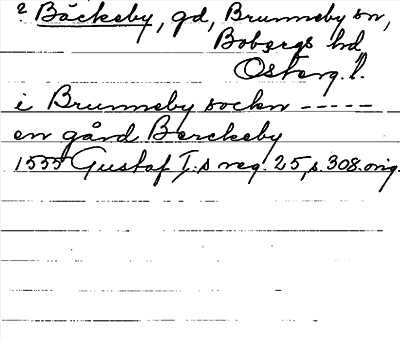 2 Bäckeby, gd, Brunneby sn,
Bobergs hd
Österg. l.
i Brunneby sockn -----
en gård Berckeby
1555 Gustaf I:s reg. 25, s. 308. orig.